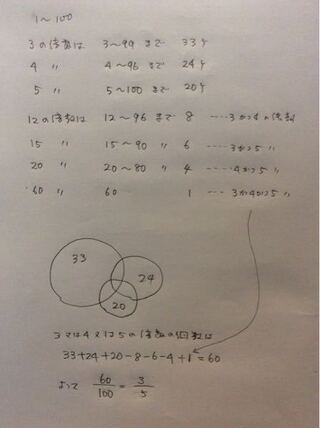 1〜100
3の倍数は 3〜99まで 33ケ
4 〃 4〜96まで 24ケ
5 〃 5〜100まで 20ケ
12の倍数は 12〜96まで 8 ----3かつ4の倍数
15 〃 15〜90 〃 6 ----3かつ5 〃
20 〃 20〜80 〃 4 ----4かつ5 〃
60 〃 60 1 ----3かつ4かつ5 〃
33
24
20
3又は4又は5の倍数の個数は
33+24+20-8-6-4+1=60
よって 60/100 = 3/5